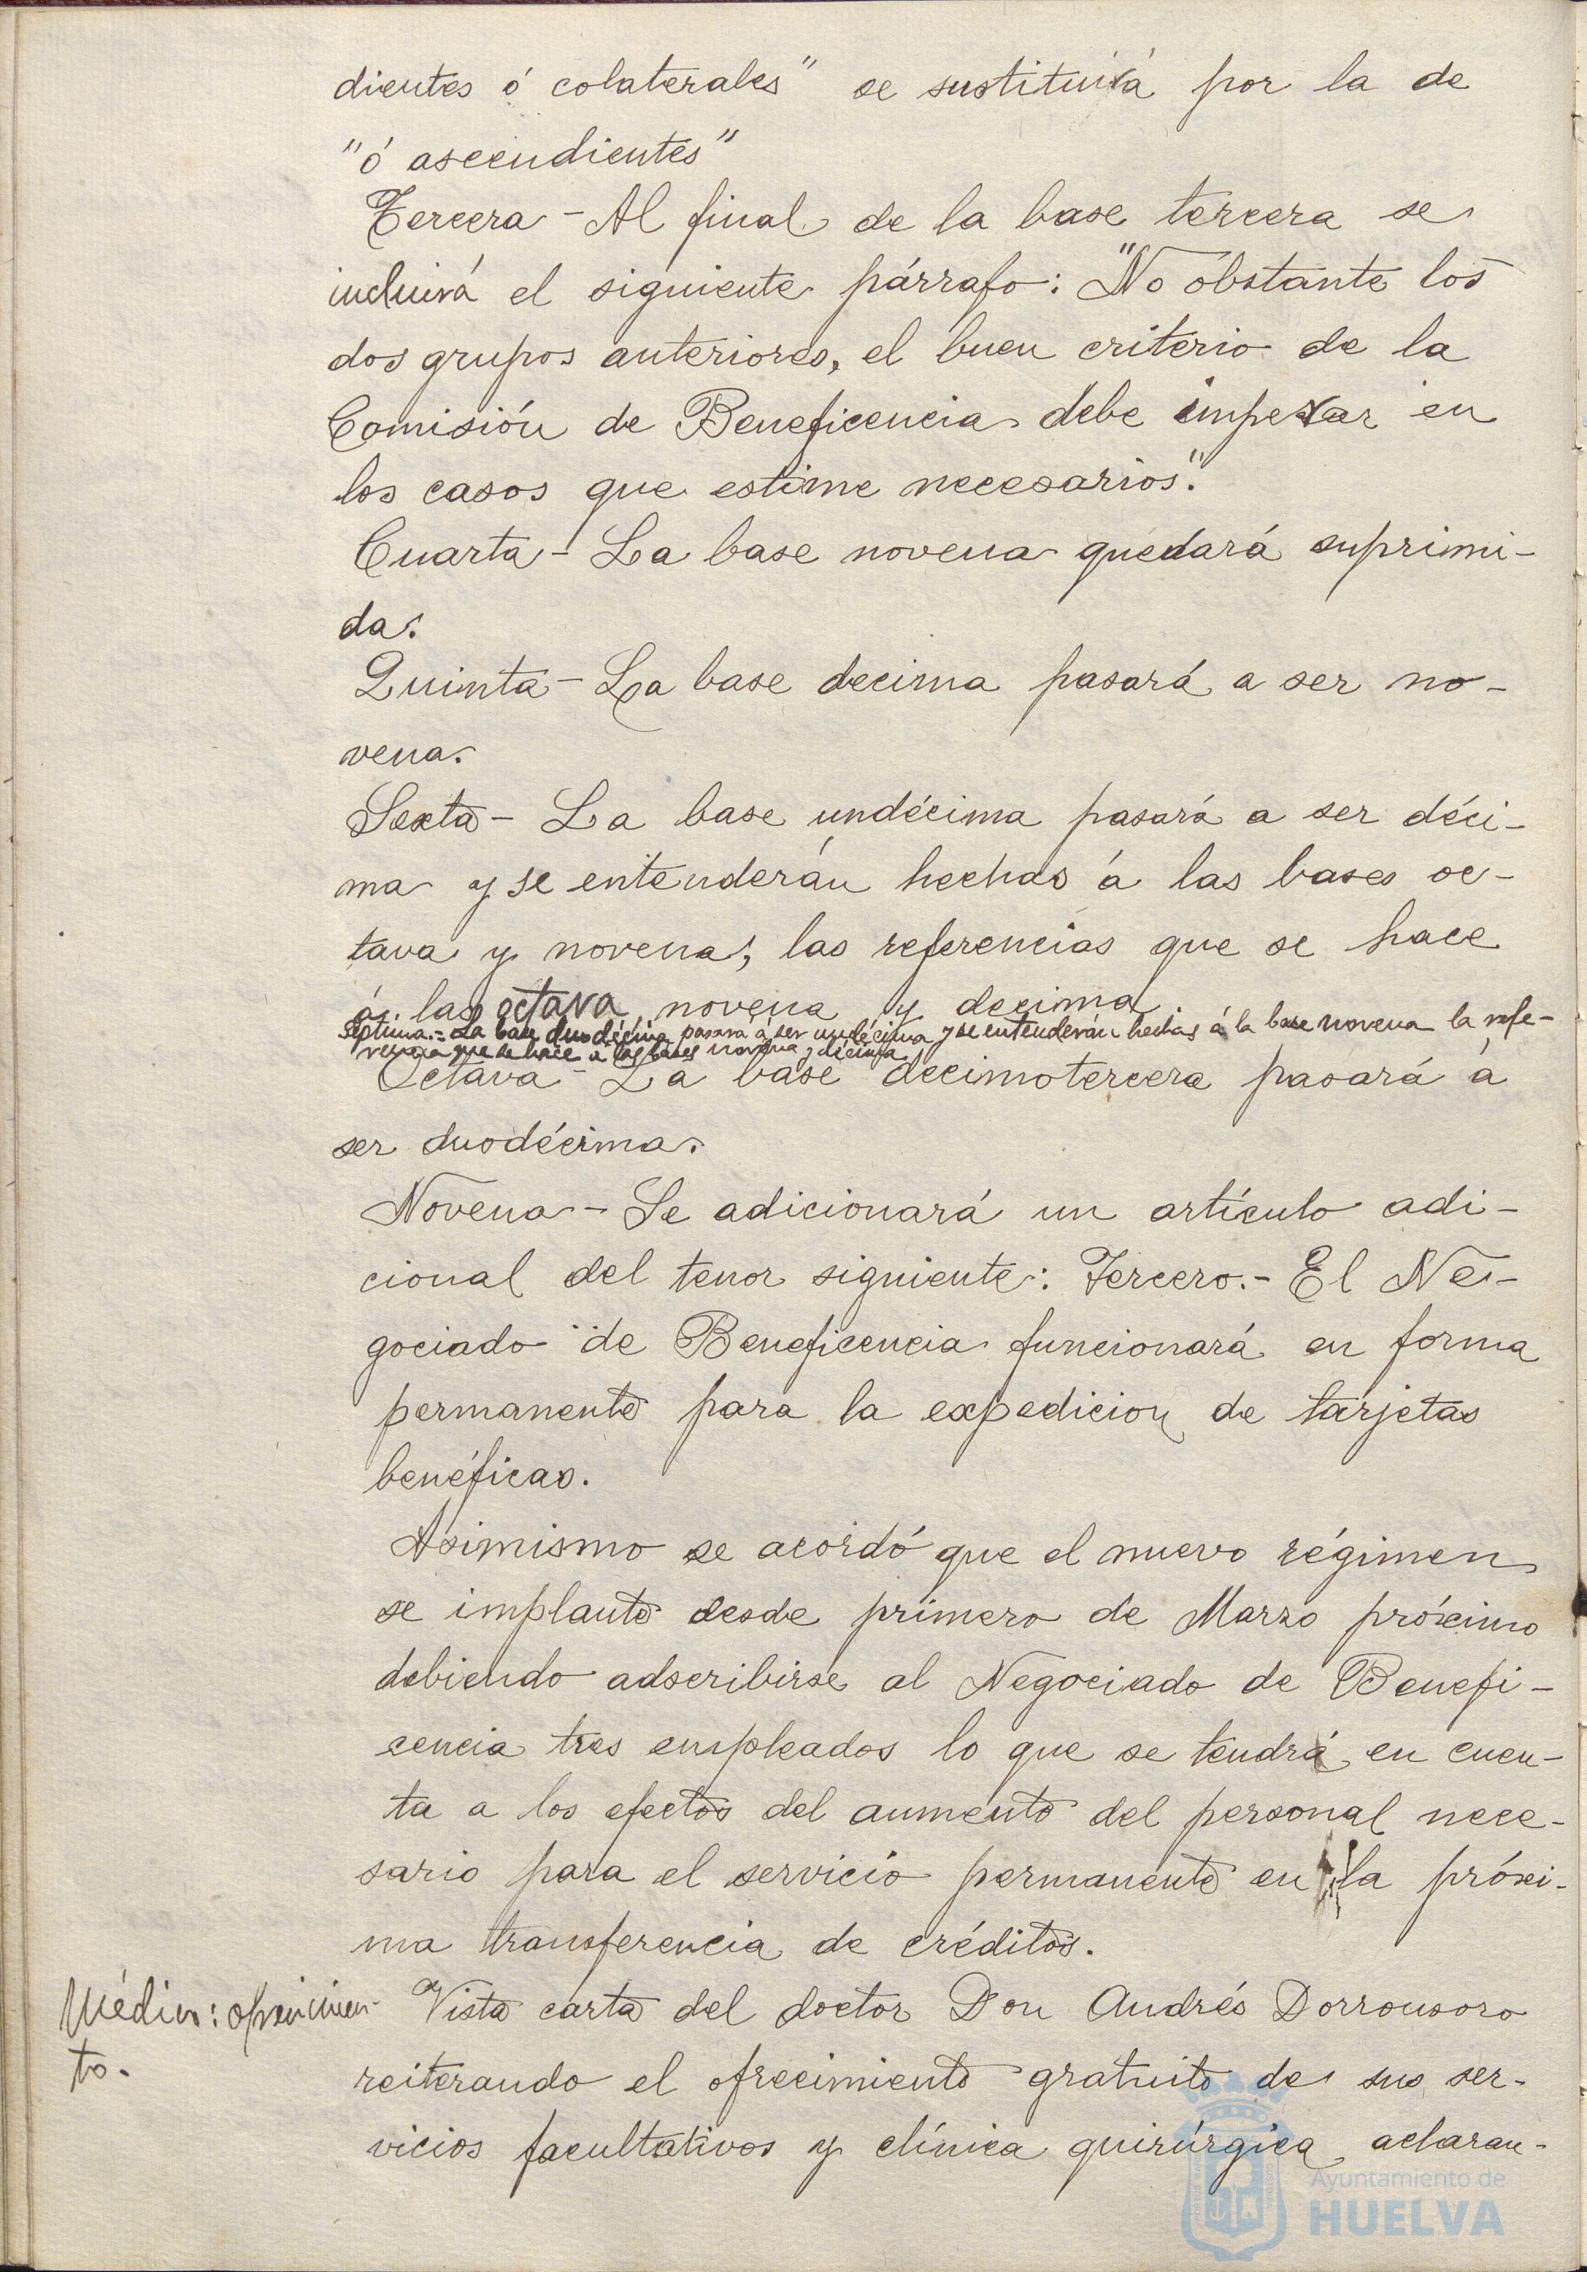 dientes ó colaterales" se sustituirá por la de
"ó ascendientes"
Tercera - Al final de la base tercera se
incluirá el siguiente párrafo: "No obstante los
dos grupos anteriores, el buen criterio de la
Comisión de Beneficencia debe imperar en
los casos que estime necesarios".
Cuarta - La base novena quedará suprimi-
da.
Quinta - La base decima pasará a ser no-
vena.
Sexta - La base undécima pasará a ser déci-
ma y se entenderán hechas á las bases oc-
tava y novena, las referencias que se hace
á las octava, novena y decima.
Séptima.- La base duodécima pasará á ser undécima y se entenderán hechas á la base novena la refe-
rencia que se hace á las bases novena y décima.
Octava - La base decimotercera pasará á
ser duodécima.
Novena - Se adicionará un artículo adi-
cional del tenor siguiente: Tercero.- El Ne-
gociado de Beneficencia funcionará en forma
permanente para la expedicion de tarjetas
benéficas.
Asimismo se acordó que el nuevo régimen
se implante desde primero de Marzo próximo
debiendo adscribirse al Negociado de Benefi-
cencia tres empleados lo que se tendrá en cuen-
ta a los efectos del aumento del personal nece-
sario para el servicio permanente en la próxi-
ma transferencia de créditos.
Médico: ofrecimien-
to.
Vista carta del doctor Don Andrés Dorronsoro
reiterando el ofrecimiento gratuito de sus ser-
vicios facultativos y clínica quirúrgica aclaran-
Ayuntamiento de
HUELVA